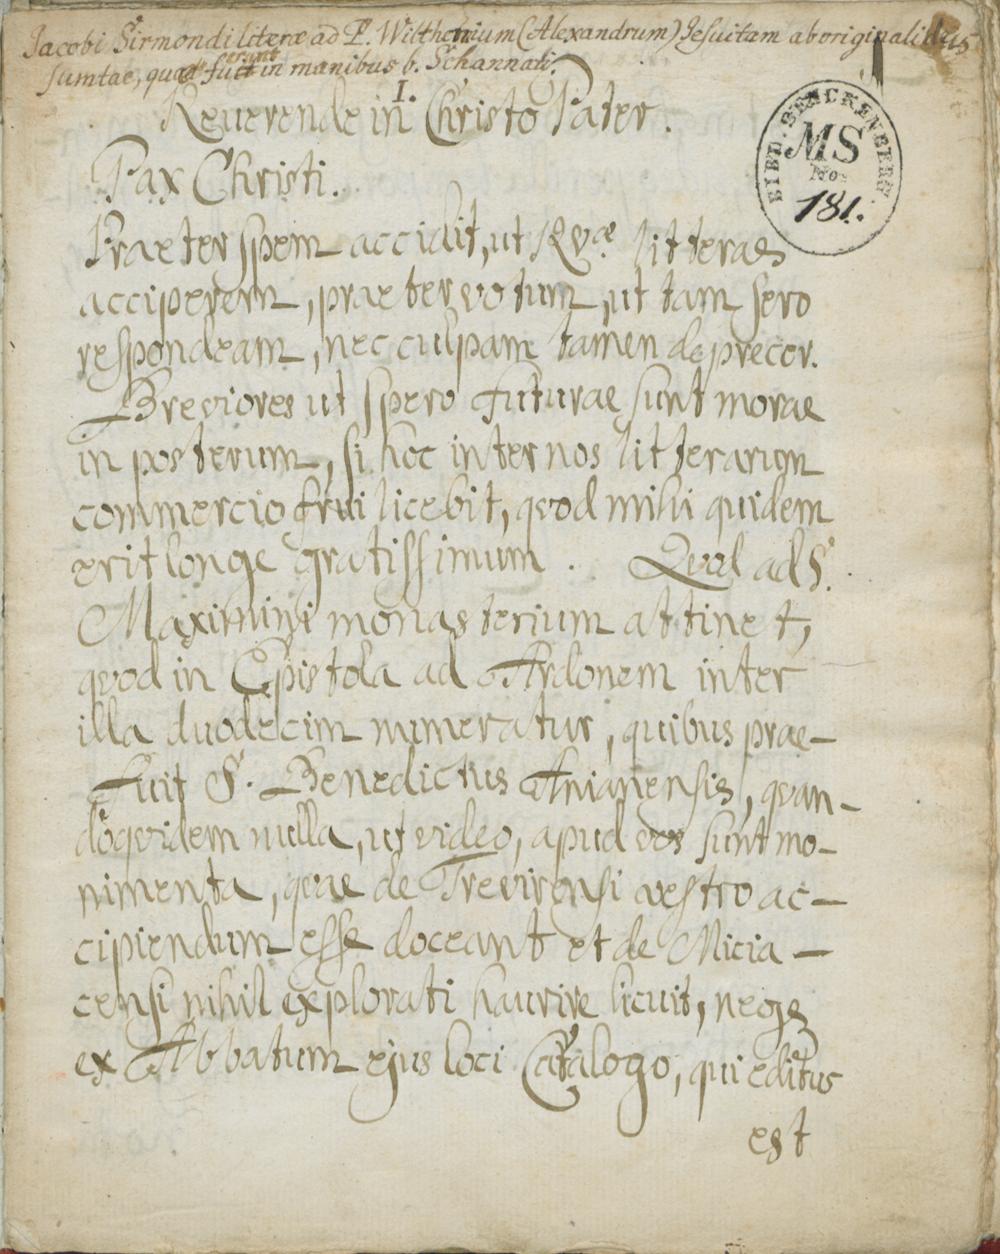 Jacobi Sirmondi literæ ad P. Wilthemium (Alexandrum) Jesuitam ab originalibus
sumtae, quae fuerunt in manibus b. Schannati.
I.
Reverende in Christo Pater.
Pax Christi.
BIBL. SENCKENBERG.
MS
No.
181.
Praeter spem accidit, ut Rvæ litteras
acciperem, praeter votum, ut tam sero
respondeam, nec culpam tamen deprecor.
Breviores ut spero futurae sunt morae
in posterum, si hoc inter nos litterarum
commercio frui licebit, qvod mihi quidem
erit longe gratissimum. Qvod ad S.
Maximini monasterium attinet,
qvod in Epistola ad Ardonem inter
illa duodecim numeratur, quibus prae-
fuit S. Benedictus Anianensis, qvan-
doqvidem nulla, ut video, apud vos sunt mo-
nimenta, qvae de Trevirensi vestro ac-
cipiendum esse doceant et de Micia-
censi nihil explorati haurire licuit, neqs
ex Abbatum ejus loci Catalogo, qui editus
est